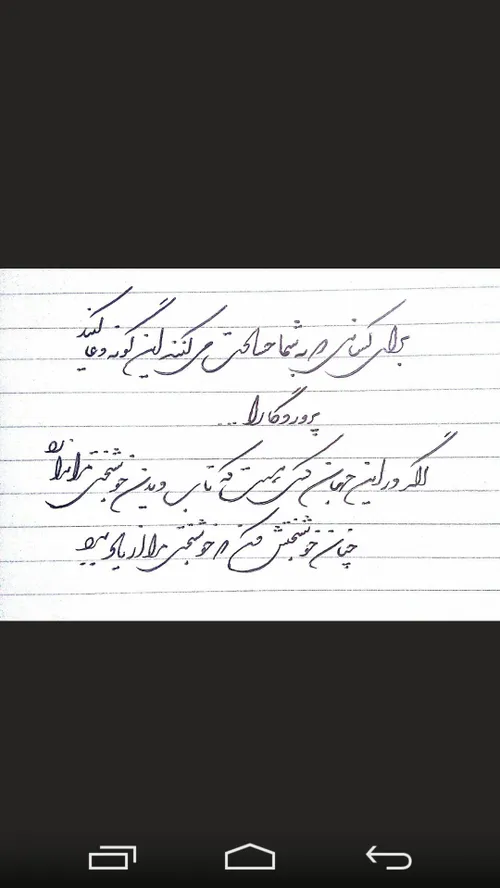 برای کسانی که به شما حسادت می کنند این گونه دعا کنید
پروردگارا...
اگر در این جهان کسی هست که تاب دیدن خوشبختی مرا ندارد
چنان خوشبختش کن که خوشبختی مرا از یاد ببرد